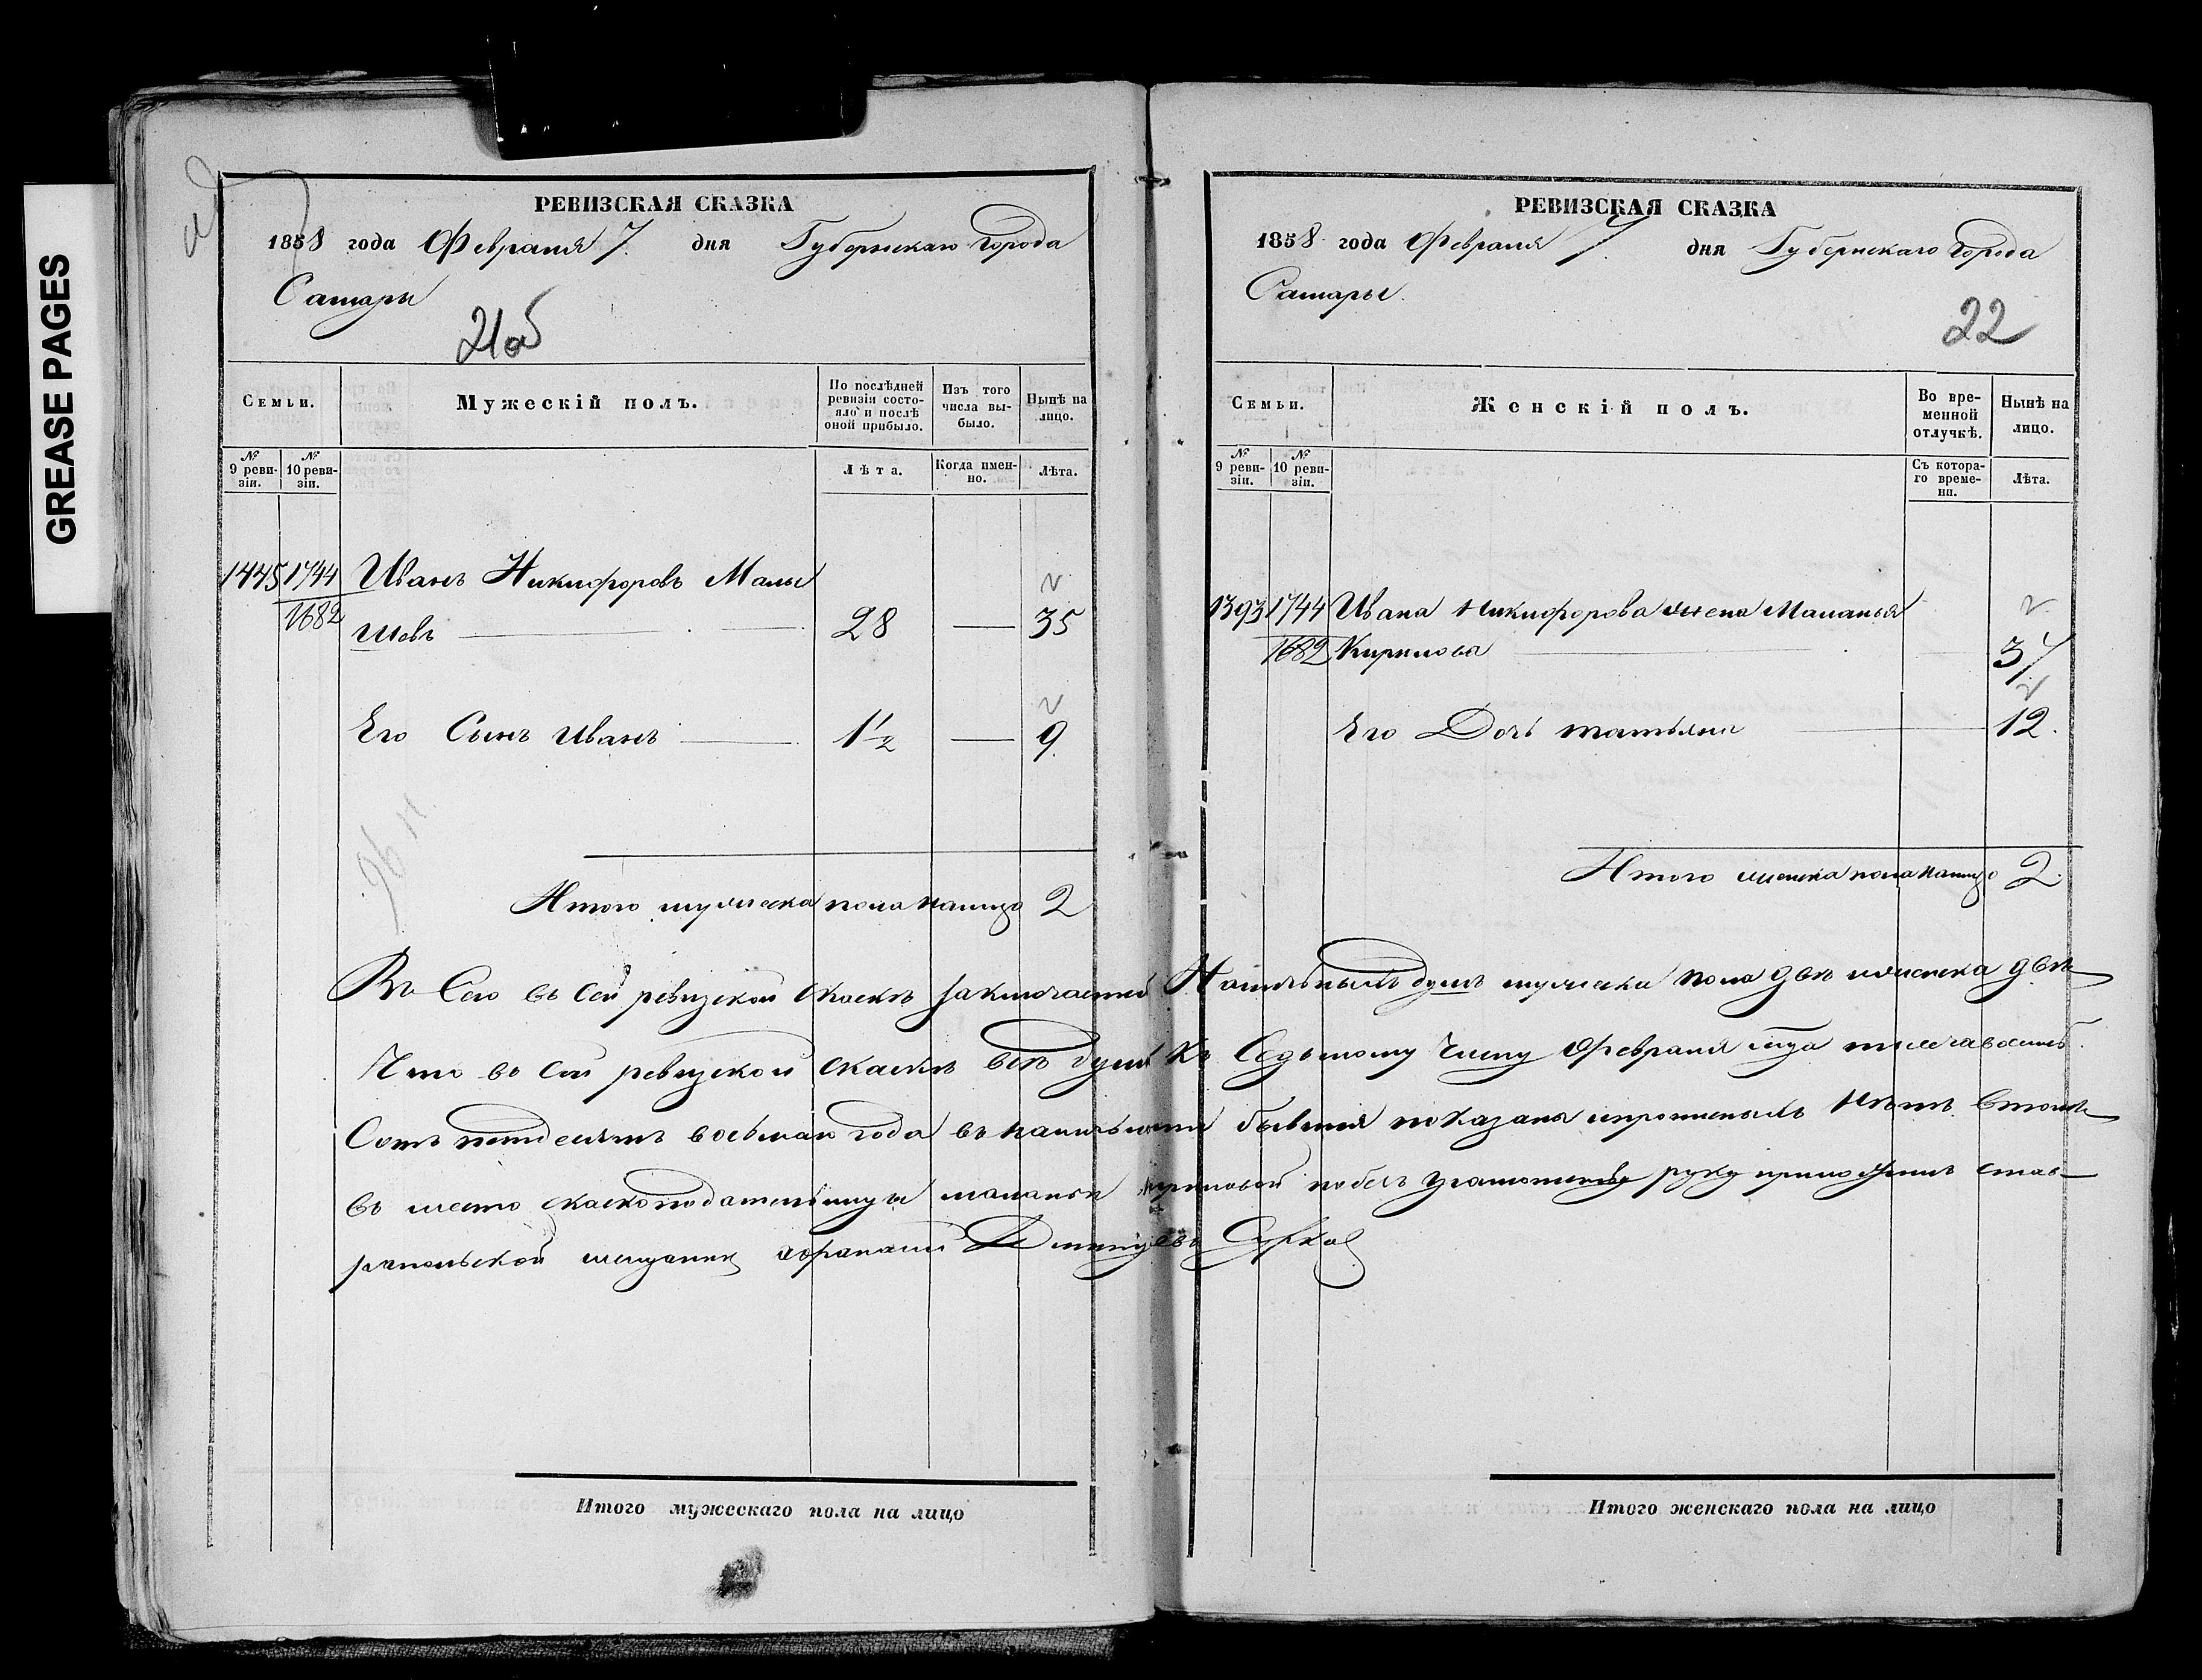 GREASE PAGES
РЕВИЗСКАЯ СКАЗКА
1858 года Февраля 7. дня Губернскаго Города
Самары
21об
Семьи.
Мужескій полъ.
По послѣдней ревизіи состояло и послѣ оной прибыло.
Изъ того числа выбыло.
Нынѣ на лицо.
№ 9 ревизіи.
№ 10 ревизіи.
Лѣта.
Когда именно.
Лѣта.
1445 1744 Иванъ Никифоровъ Малы
1682 шевъ 28 — 35
Его Сынъ Иванъ 1½ — 9.
Итого мужеска пола налицо 2
РЕВИЗСКАЯ СКАЗКА
1858 года Февраля 7 дня Губернскаго Города
Самары.
22
Семьи.
Женскій полъ.
Во временной отлучкѣ.
Нынѣ на лицо.
№ 9 ревизіи.
№ 10 ревизіи.
Съ котораго времени.
Лѣта.
1393 1744 Ивана Никифорова жена Маланья
1682 Кирилова 37
Его Дочь татьяна 12.
Итого женска пола налицо 2.
Въ Сего въ сей ревизской скаскѣ заключается Наличныхъ душъ мужеска пола двѣ женска двѣ
Что во сей ревизской скаскѣ всѣ души Къ Седьмому Числу Февраля тысеча восемь
Сотъ пятдесятъ восьмаго года въ наличности бывшия показаны ипрописныхъ Нѣтъ Втомъ
въ место скаскоподательницы маланьи Кириловой побезъ руку приложилъ став
рапольской мещанинъ
Итого мужескаго пола на лицо
Итого женскаго пола на лицо